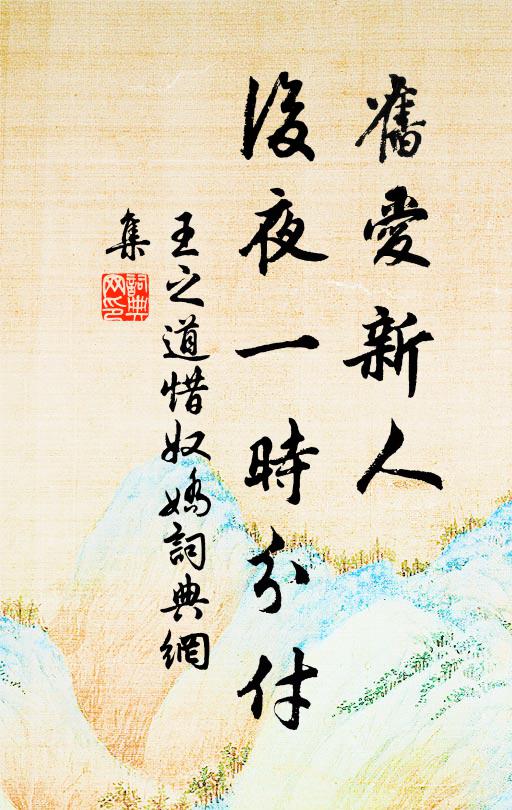 舊愛新人
後夜一時分付
王之道惜奴嬌詞典網
集
詞典
网印